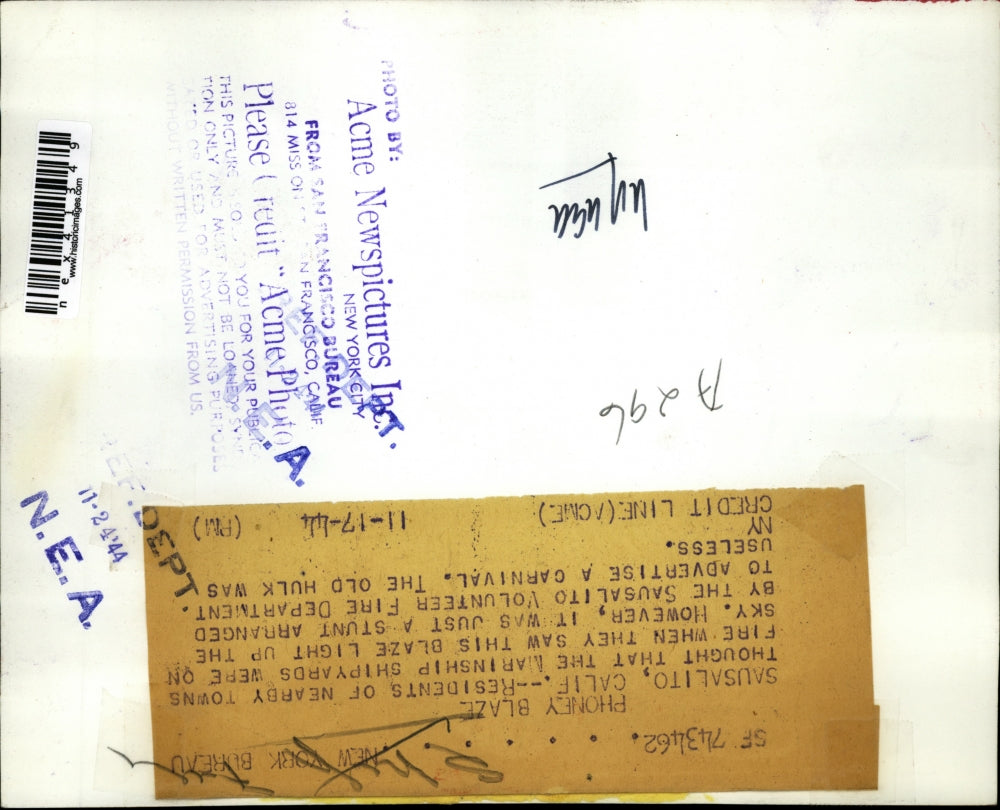 PHOTO BY:
Acme Newspictures Inc.
NEW YORK CITY
FROM SAN FRANCISCO BUREAU
814 MISSION FRANCISCO, CALIF.
Please Credit "Acme Photo
THIS PICTURE YOU FOR YOUR PUBLIC
TION ONLY AND MUST NOT BE LOANED
OR USED FOR ADVERTISING PURPOSES
WITHOUT WRITTEN PERMISSION FROM US.
www.historicimages.com
nex41349
A296
REF. DEPT.
11-24-44
N.E.A.
SF 743462. . . . . . NEW YORK BUREAU
PHONEY BLAZE
SAUSALITO, CALIF.--RESIDENTS OF NEARBY TOWNS
THOUGHT THAT THE MARINSHIP SHIPYARDS WERE ON
FIRE WHEN THEY SAW THIS BLAZE LIGHT UP THE
SKY. HOWEVER, IT WAS JUST A STUNT ARRANGED
BY THE SAUSALITO VOLUNTEER FIRE DEPARTMENT
TO ADVERTISE A CARNIVAL. THE OLD HULK WAS
USELESS.
NY
CREDIT LINE(ACME) 11-17-44 (RM)